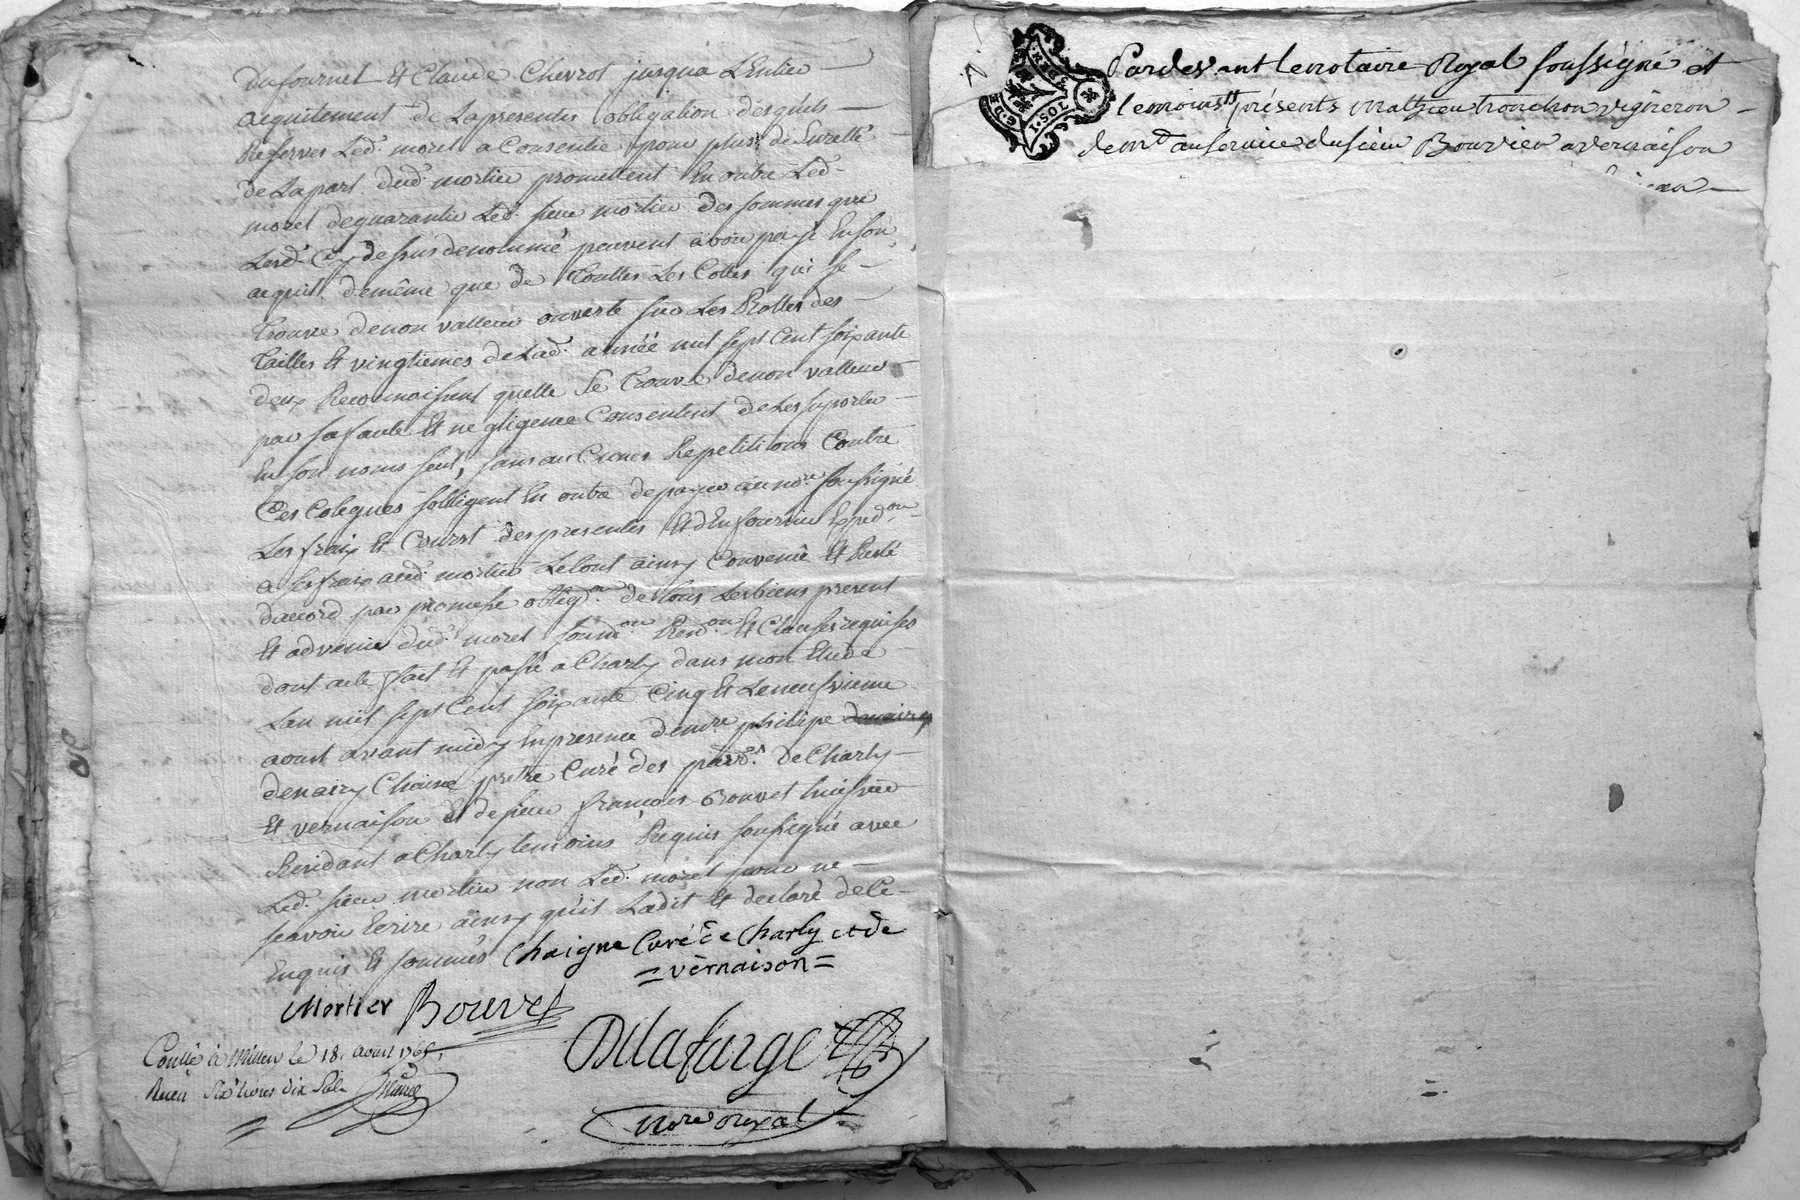 Dufournel Et Claude Chevrot jusqua LEntier
acquitement de Lapresentes obligation desquels
Reserves Led. moret a Consentie pour plus de Suretté
de La part dud. mortier promettent En outre Led.
moret de garantir Led. sieur mortier des sommes que
Lesd. Cy dessus denommé peuvent avoir payé En son
acquit demême que de Touttes Les Cottes qui se
Trouve denon valleur ouverte sur Les Rolles des
Tailles Et vingtiemes de Lad. année mil sept Cent soixante
deux Reconnoissent quelle se Trouve denon valleur
par sa faute Et negligence Consentent de Les suporter
En son noms seul, sans aucunes Repetitions Contre
Ces Colegues sobligent En outre depayer au nore soussigné
Les fraix Et Coust des presentes Et dEn fournir Expedon
a ses fraix aud. mortier Le tout ainsy Convenû Et Resté
daccord par promesse obligon de tous Les biens present
Et advenir dud. moret soumon Renon Et Clauses requises
dont acte fait Et passé a Charly dans mon Etude
Lan mil sept Cent soixante Cinq Et Leneufvieme
aoust avant midy En presence de mre philipe
denairy Chaine pretre Curé des parres de Charly
Et vernaison Et de sieur françois Bouvet huissier
Residant a Charly temoins Requis soussigné avec
Led. sieur mortier non Led. moret pour ne
sçavoir Ecrire ainsy qu'il La dit Et declaré de Ce
Enquis Et sommés Chaigne Curé de Charly et de
= vernaison =
Mortier Bouvet
Conllé a Millery le 18. aout 1765.
Reçu Six livres dix Sols
Delafarge
Nore royal
1 SOL
Pardevant lenotaire Royal soussigné et
temoins présents Mathieu tronchon vigneron
demt auservice dusieur Bouvier avernaison